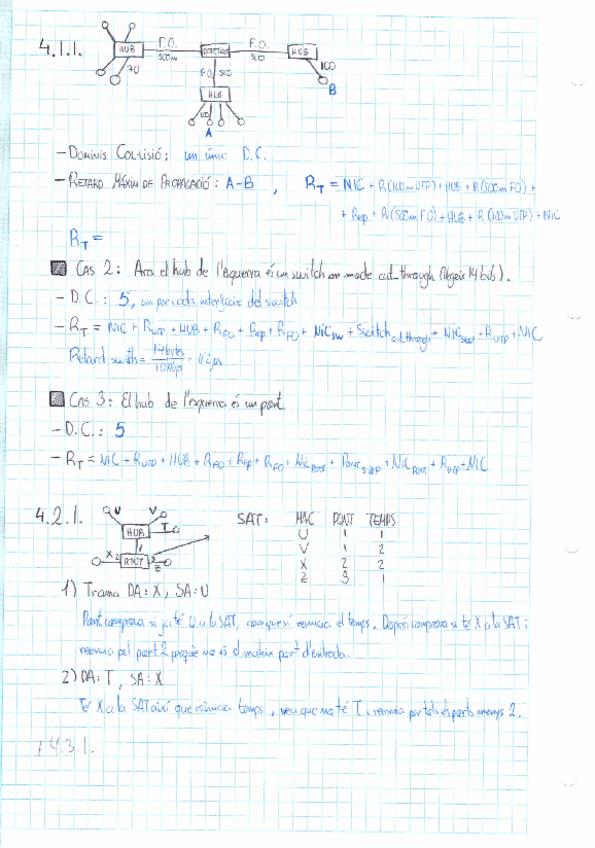 4.1.1.
HUB F.O. 500m REPETIDOR F.O. 500 HUB
70 F.O. 500 100
HUB B
100
A
- DOMINIS COL·LISIÓ: un únic D.C.
- RETARD MÀXIM DE PROPAGACIÓ: A-B , RT = NIC + R(100m UTP) + HUB + R(500m FO) +
+ Rep + R(500m FO) + HUB + R(100m UTP) + NIC
RT =
CAS 2: Ara el hub de l'esquerra és un switch en mode cut-through (llegeix 14 bits).
- D.C.: 5, un per cada interfície del switch
- RT = NIC + RUTP + HUB + RFO + Rep + RFO + NICSW + Switch cut through + NICSW + RUTP + NIC
Retard switch = 14 bytes / 10Mbps = 11'2 µs
CAS 3: El hub de l'esquerra és un pont.
- D.C.: 5
- RT = NIC + RUTP + HUB + RFO + Rep + RFO + NICPONT + PONT + NICPONT + RUTP + NIC
4.2.1. U V T SAT: MAC PONT TEMPS
HUB U 1 1
1 V 1 2
X 2 PONT 3 X 2 2
Z Z 3 1
1) Trama DA: X, SA: U
Pont comprova si ja té U a la SAT, com que sí reinicia el temps. Després comprova si té X a la SAT i
reenvia pel port 2 perquè no és el mateix port d'entrada.
2) DA: T, SA: X
Té X a la SAT així que reinicia temps, veu que no té T i reenvia per tots els ports menys 2.
4.3.1.